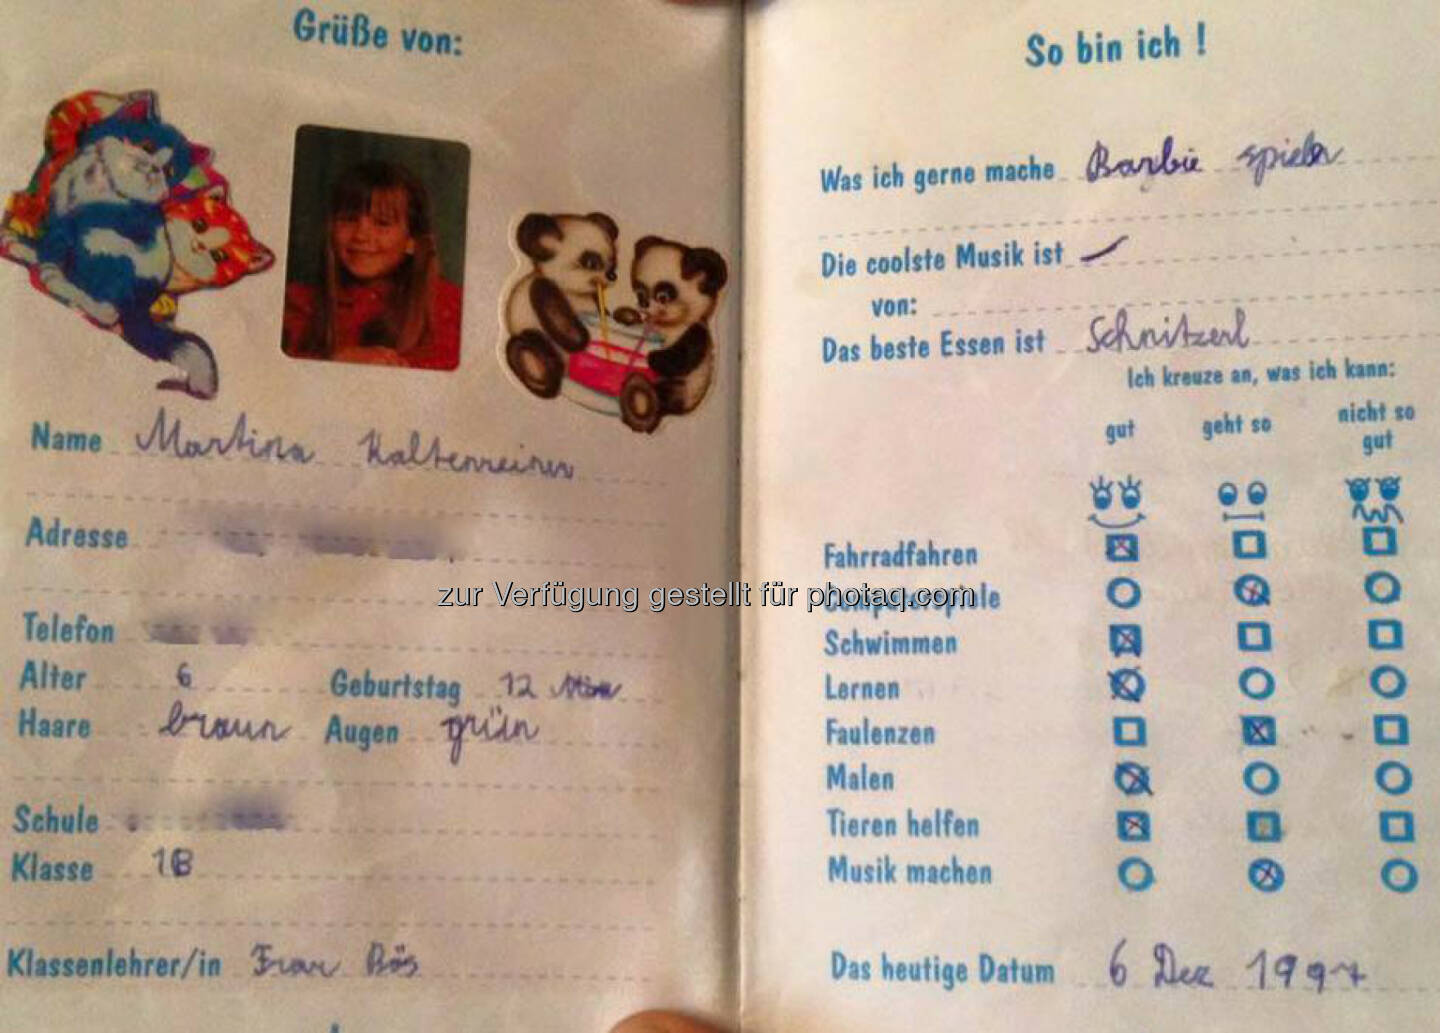 Grüße von:
Name Martina Kaltenreiner
Adresse
Telefon
Alter 6 Geburtstag 12
Haare braun Augen grün
Schule
Klasse 1B
Klassenlehrer/in Frau Bös
So bin ich !
Was ich gerne mache Barbie spielen
Die coolste Musik ist –
von:
Das beste Essen ist Schnitzerl
Ich kreuze an, was ich kann:
gut geht so nicht so
gut
Fahrradfahren
Computerspiele
Schwimmen
Lernen
Faulenzen
Malen
Tieren helfen
Musik machen
Das heutige Datum 6 Dez 1997
zur Verfügung gestellt für photaq.com